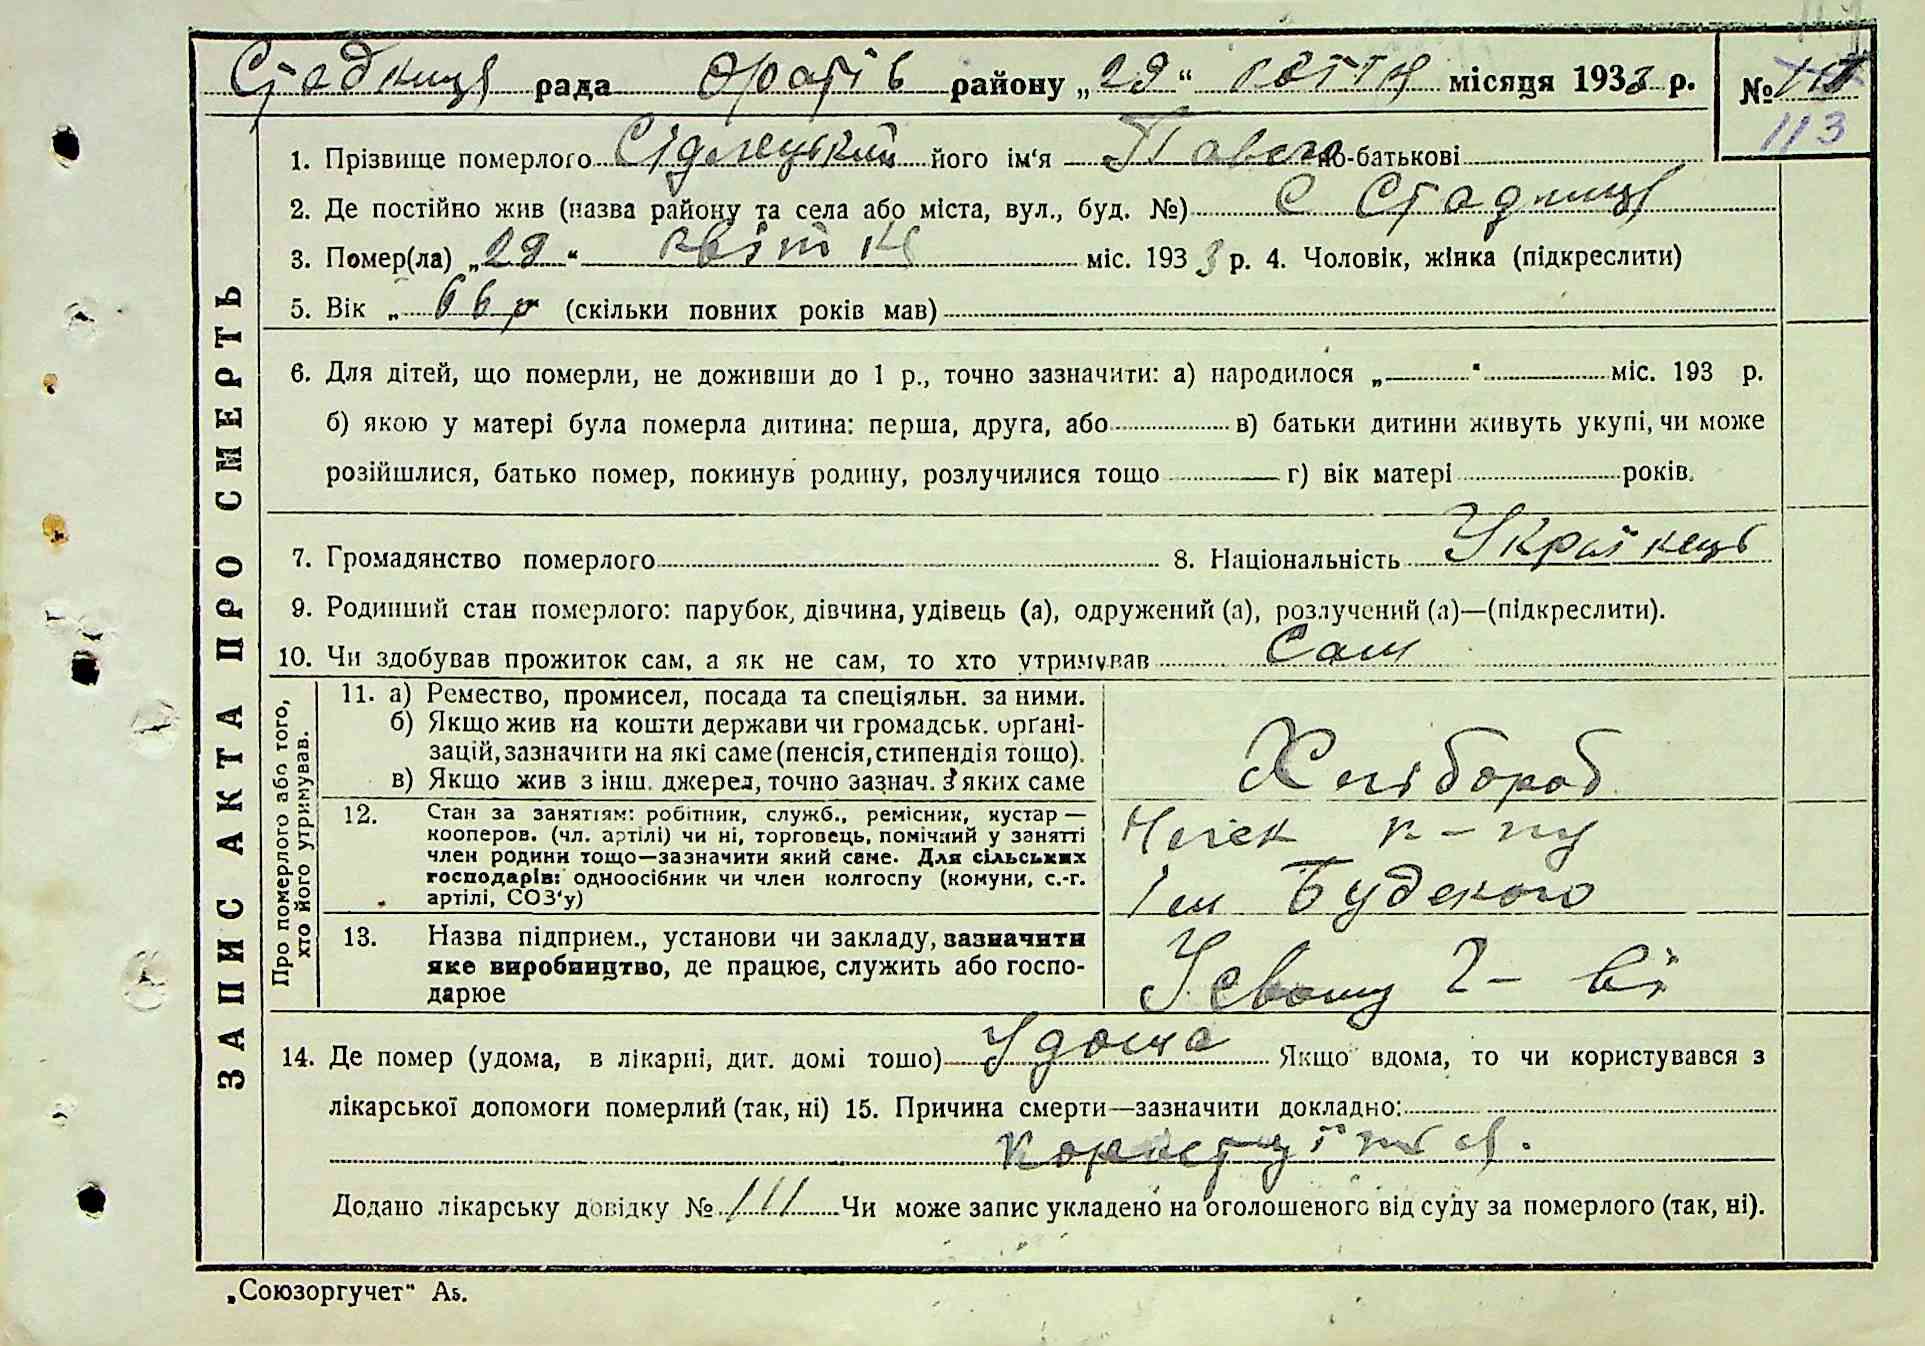 Стадниця рада Оратів району „29“ квітня місяця 1933 р. № 113
1. Прізвище померлого Сідлецький його ім‘я Павло по-батькові
2. Де постійно жив (назва району та села або міста, вул., буд. №) с Стадниця
3. Помер(ла) „29“ квітня міс. 1933 р. 4. Чоловік, жінка (підкреслити)
5. Вік „ 66 р (скільки повних років мав)
6. Для дітей, що померли, не доживши до 1 р., точно зазначити: а) народилося „ “ міс. 193 р.
б) якою у матері була померла дитина: перша, друга, або в) батьки дитини живуть укупі, чи може
розійшлися, батько помер, покинув родину, розлучилися тощо г) вік матері років.
7. Громадянство померлого 8. Національність Українець
9. Родинний стан померлого: парубок, дівчина, удівець (а), одружений (а), розлучений (а)—(підкреслити).
10. Чи здобував прожиток сам, а як не сам, то хто утримував Сам
ЗАПИС АКТА ПРО СМЕРТЬ
Про померлого або того,
хто його утримував.
11. а) Ремество, промисел, посада та спеціяльн. за ними.
б) Якщо жив на кошти держави чи громадськ. органі-
зацій, зазначити на які саме (пенсія, стипендія тощо).
в) Якщо жив з інш. джерел, точно зазнач. з яких саме
Хлібороб
12. Стан за заняттям: робітник, служб., ремісник, кустар —
кооперов. (чл. артілі) чи ні, торговець, помічний у занятті
член родини тощо—зазначити який саме. Для сільських
господарів: одноосібник чи член колгоспу (комуни, с.-г.
артілі, СОЗ‘у)
Член к-пу
ім
13. Назва підприєм., установи чи закладу, зазначити
яке виробництво, де працює, служить або госпо-
дарює
14. Де помер (удома, в лікарні, дит. домі тощо) Удома Якщо вдома, то чи користувався з
лікарської допомоги померлий (так, ні) 15. Причина смерти—зазначити докладно:
Додано лікарську довідку № 111 Чи може запис укладено на оголошеного від суду за померлого (так, ні).
„Союзоргучет“ А5.